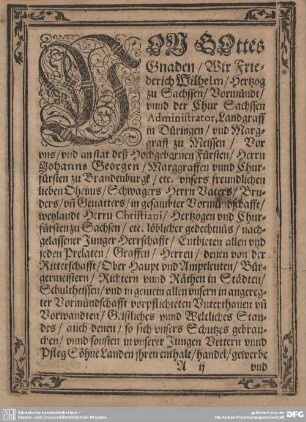 VON GOttes
Gnaden / Wir Frie-
derich Wilhelm / Hertzog
zu Sachssen / Vormündt /
vnnd der Chur Sachssen
Administrator, Landgraff
in Düringen / vnd Marg-
graff zu Meissen / Vor
vns / vnd an stat deß Hochgebornen Fürsten / Herrn
Johanns Georgen / Marggraffen vnnd Chur-
fürsten zu Brandenburgk / etc. vnsers freundlichen
lieben Oheims / Schwagers Herrn Vaters / Bru-
ders / vñ Geuatters / in gesambter Vormundschafft /
weylandt Herrn Christiani / Hertzogen vnd Chur-
fürsten zu Sachssen / etc. löblicher gedechtnüs / nach-
gelassener Junger Herrschafft / Entbieten allen vnd
jeden Prelaten / Graffen / Herren / denen von der
Ritterschafft / Ober Haupt vnd Amptleuten / Bür-
germeistern / Richtern vnnd Räthen in Städten /
Schultheissen / vnd in gemein allen vnsern in angereg-
ter Vormündschafft vorpflichteten Vnterthanen vñ
Vorwandten / Geistliches vnnd Weltliches Stan-
des / auch denen / so sich vnsers Schutzes gebrau-
chen / vnnd sonsten in vnserer Jungen Vettern vnnd
Pfleg Söhne Landen jhren enthalt / handel / gewerbe
A ij vnd